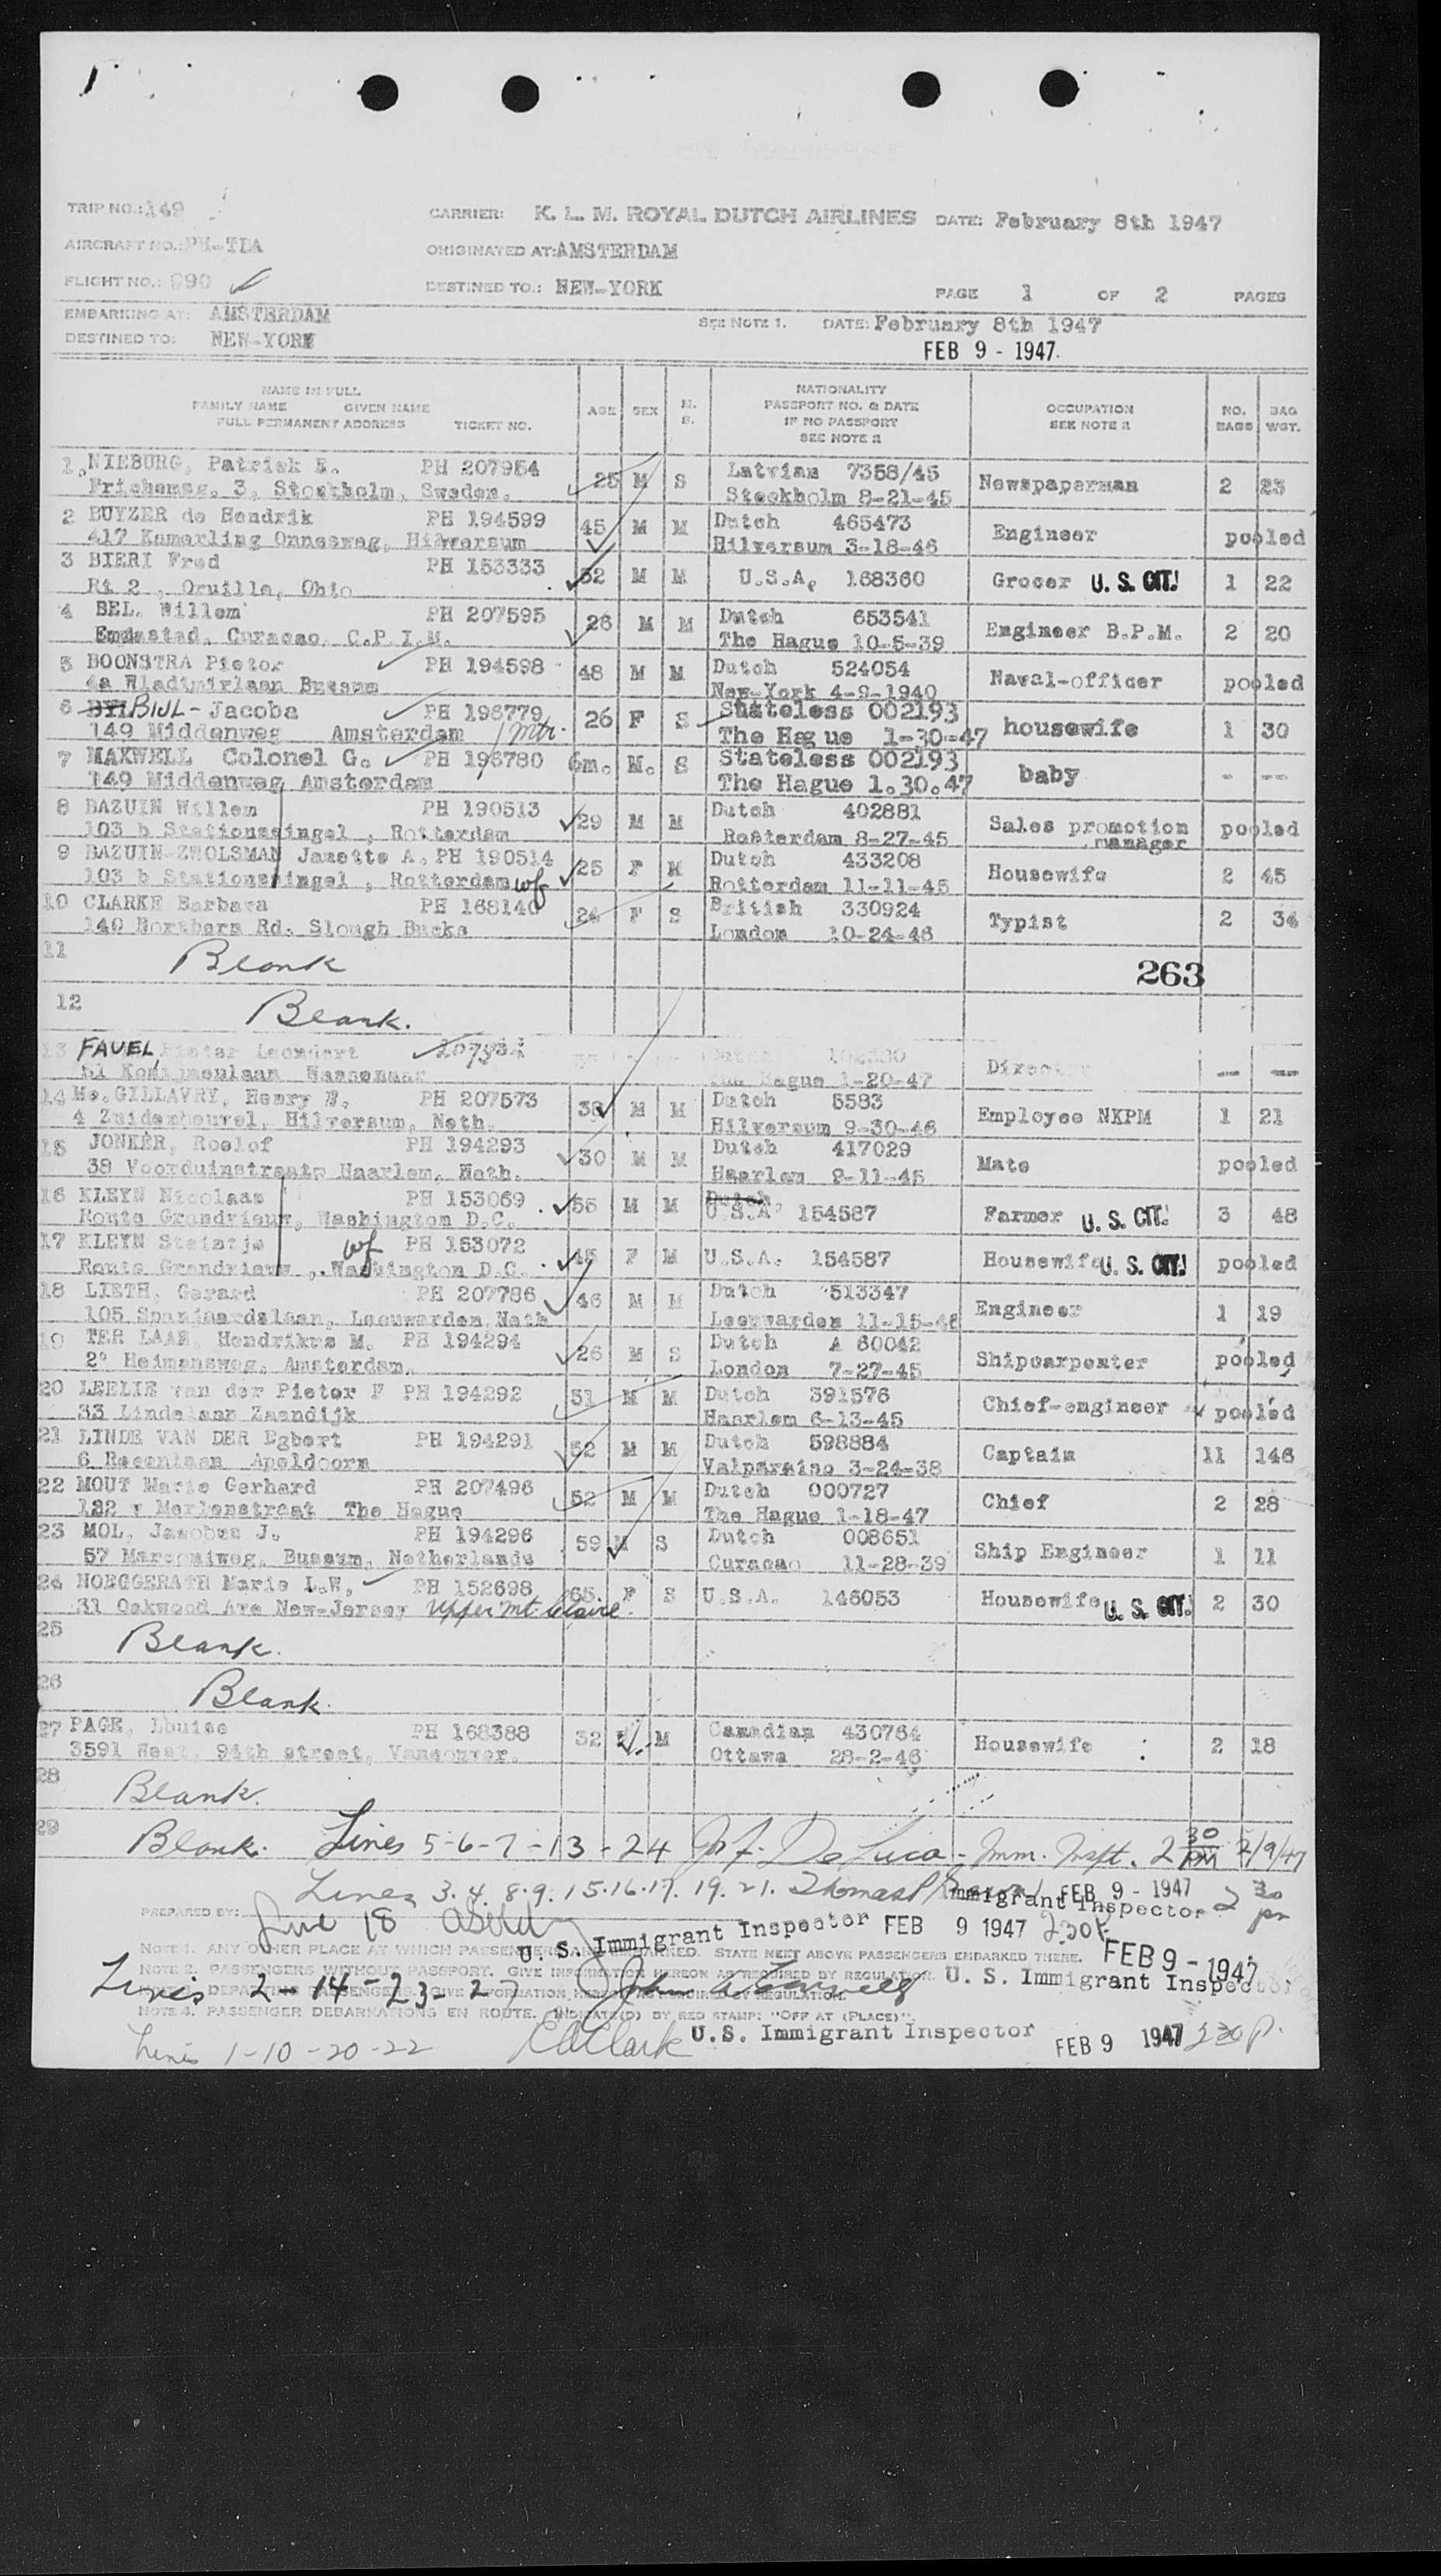 TRIP NO.: 149
CARRIER: K. L. M. ROYAL DUTCH AIRLINES DATE: February 8th 1947
AIRCRAFT NO.: PH-TDA
ORIGINATED AT: AMSTERDAM
FLIGHT NO.: 990
DESTINED TO.: NEW-YORK
PAGE 1 OF 2 PAGES
EMBARKING AT: AMSTERDAM
SEE NOTE 1. DATE: February 8th 1947
DESTINED TO: NEW-YORK
FEB 9 - 1947.
NAME IN FULL
FAMILY NAME GIVEN NAME
FULL PERMANENT ADDRESS TICKET NO.
AGE SEX M. S.
NATIONALITY
PASSPORT NO. & DATE
IF NO PASSPORT
SEE NOTE 2
OCCUPATION
SEE NOTE 2
NO. BAGS
BAG WGT.
1. NIEBURG, Patrick E. PH 207954 25 M S Latvian 7358/45 Newspaperman 2 23
3, Stockholm, Sweden. Stockholm 8-21-45
2 BUYZER de Hendrik PH 194599 45 M M Dutch 465473 Engineer pooled
417 Kamerling Onnesweg, Hilversum Hilversum 3-18-46
3 BIERI Fred PH 153333 52 M M U.S.A. 168360 Grocer U. S. CIT. 1 22
Rt 2, Oruille, Ohio
4 BEL. Willem PH 207595 26 M M Dutch 653541 Engineer B.P.M. 2 20
Emmastad, Curacao, C.P.I.M. The Hague 10-5-39
5 BOONSTRA Pieter PH 194598 48 M M Dutch 524054 Naval-officer pooled
4a Wladimirlaan Bussum New-York 4-9-1940
6 BIJL - Jacoba PH 196779 26 F S Stateless 002193 housewife 1 30
149 Middenweg Amsterdam Mtr. The Hague 1-30-47
7 MAXWELL Colonel G. PH 196780 6m. M. S Stateless 002193 baby - --
149 Middenweg Amsterdam The Hague 1.30.47
8 BAZUIN Willem PH 190513 29 M M Dutch 402881 Sales promotion manager pooled
103 b Stationssingel, Rotterdam Rotterdam 8-27-45
9 BAZUIN-ZWOLSMAN Janette A. PH 190514 25 F M Dutch 433208 Housewife 2 45
103 b Stationssingel, Rotterdam wf Rotterdam 11-11-45
10 CLARKE Barbara PH 168140 24 F S British 330924 Typist 2 34
140 Northern Rd. Slough Bucks London 10-24-46
11 Blank
263
12 Blank.
13 FAVEL, Pieter Leendert 102330 — —
Wassenaar The Hague 1-20-47
14 Mc. GILLAVRY, Henry W. PH 207573 38 M M Dutch 5583 Employee NKPM 1 21
4 Zuiderheuvel, Hilversum, Neth. Hilversum 9-30-46
15 JONKER, Roelof PH 194293 30 M M Dutch 417029 Mate pooled
39 Voorduinstraat, Haarlem, Neth. Haarlem 9-11-45
16 KLEYN Nicolaas PH 153069 55 M M Dutch U.S.A. 154587 Farmer U. S. CIT. 3 48
Route Grandview, Washington D.C.
17 KLEYN Steintje wf PH 153072 45 F M U.S.A. 154587 Housewife U. S. CIT. pooled
Route Grandview, Washington D.C.
18 LIETH, Gerard PH 207786 46 M M Dutch 513347 Engineer 1 19
105 Spanjaardslaan, Leeuwarden, Neth Leeuwarden 11-15-46
19 TER LAAN, Hendrikus M. PH 194294 26 M S Dutch A 60042 Shipcarpenter pooled
2° Heimansweg, Amsterdam. London 7-27-45
20 LEELIE van der Pieter F PH 194292 51 M M Dutch 391576 Chief-engineer pooled
33 Lindelaan Zaandijk Haarlem 6-13-45
21 LINDE VAN DER Egbert PH 194291 52 M M Dutch 598884 Captain 11 146
6 Apeldoorn Valparaiso 3-24-38
22 MOUT Marie Gerhard PH 207496 52 M M Dutch 000727 Chief 2 28
Merlenstraat The Hague The Hague 1-18-47
23 MOL, Jacobus J. PH 194296 59 M S Dutch 008651 Ship Engineer 1 11
57 Marconiweg, Bussum, Netherlands Curacao 11-28-39
24 NOEGGERATH Marie L.W. PH 152698 65 F S U.S.A. 146053 Housewife U. S. CIT. 2 30
31 Oakwood Ave New-Jersey Upper Mt. Claire.
25 Blank.
26 Blank.
27 PAGE, Louise PH 168388 32 F M Canadian 430764 Housewife 2 18
3591 West, 94th street, Vancouver. Ottawa 28-2-46
28 Blank.
29 Blank. Lines 5-6-7-13-24 De Luca - Imm. Inspt. 2 30 PM 2/9/47
Lines 3.4.8.9.15.16.17.19.21. Thomas P. Immigrant Inspector FEB 9 - 1947 2 30 pm
PREPARED BY: Line 18 U. S. Immigrant Inspector FEB 9 1947 230P.
NOTE 1. ANY OTHER PLACE AT WHICH PASSENGERS ARE EMBARKED. STATE NEXT ABOVE PASSENGERS EMBARKED THERE. FEB 9 - 1947
NOTE 2. PASSENGERS WITHOUT PASSPORT. GIVE INFORMATION HEREON AS REQUIRED BY REGULATION. U. S. Immigrant Inspector
Lines 2-14-23-27 John
NOTE 4. PASSENGER DEBARKATIONS EN ROUTE. INDICATE(D) BY RED STAMP: "OFF AT (PLACE)".
Lines 1-10-20-22 Clark U.S. Immigrant Inspector FEB 9 1947 230 P.